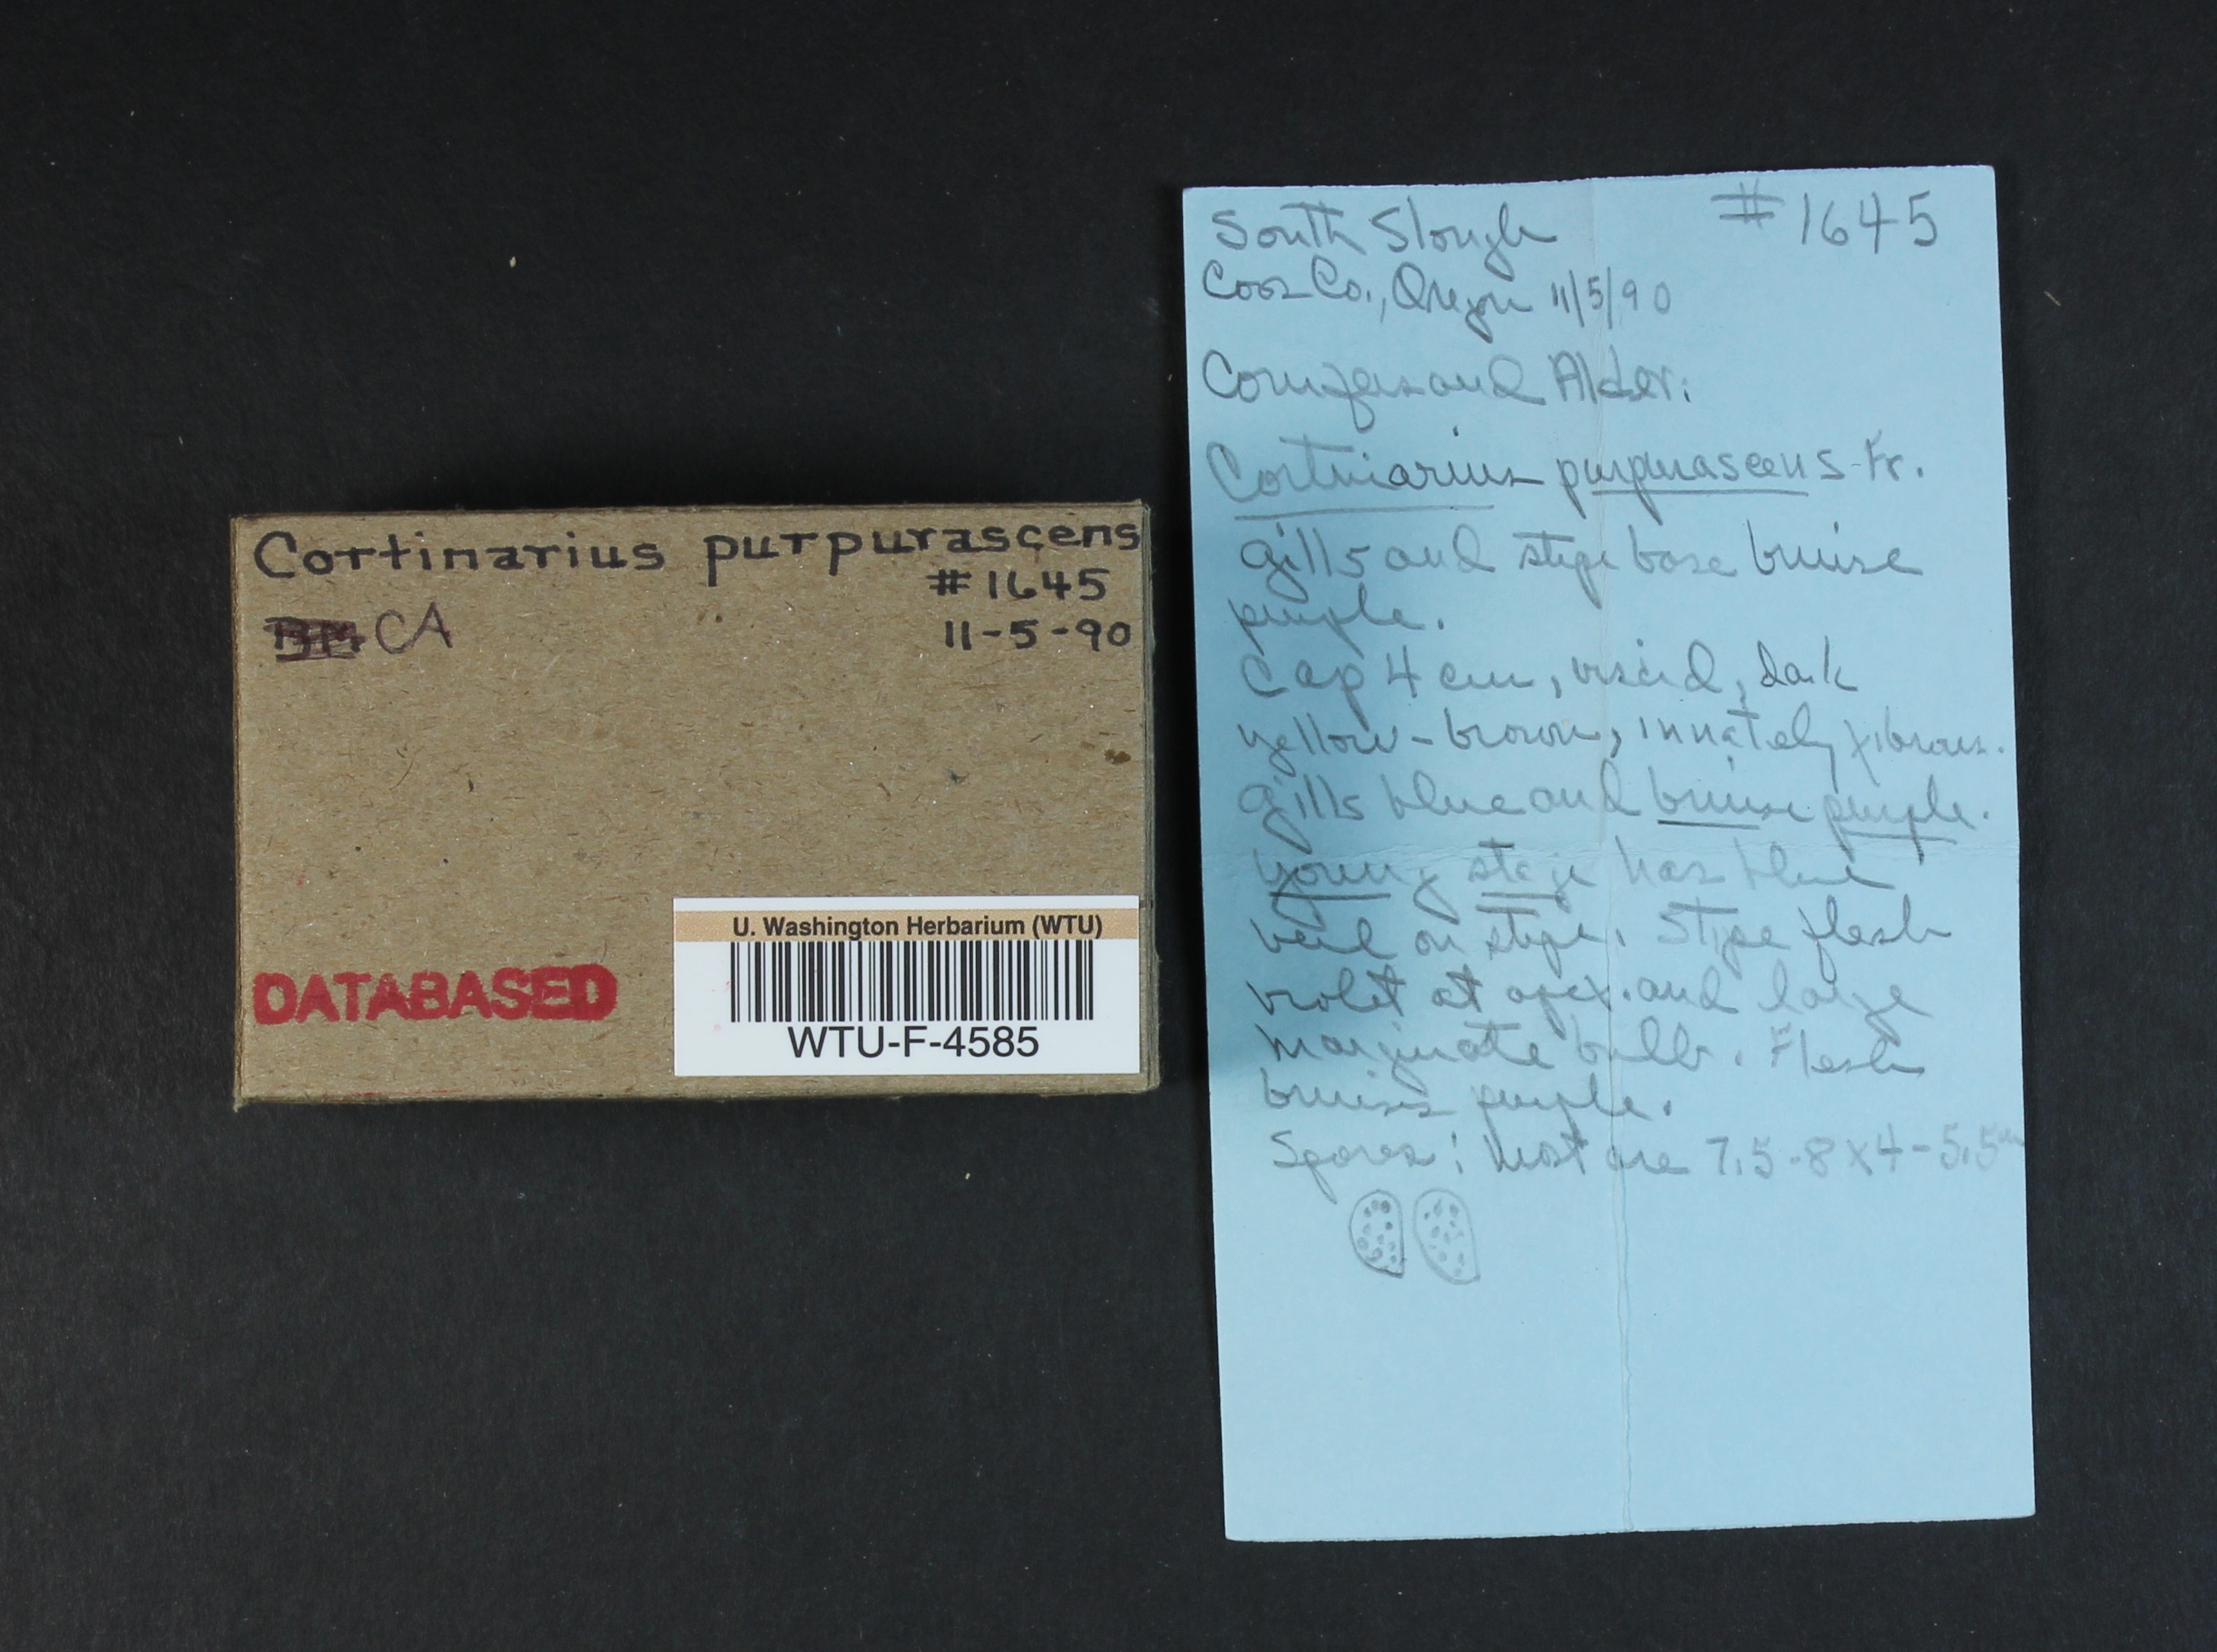 Cortinarius purpurascens
#1645
CA
11-5-90
DATABASED
U. Washington Herbarium (WTU)
WTU-F-4585
South Slough #1645
Coos Co., Oregon 11/5/90
Conifers and Alder.
Cortinarius purpurascens Fr.
Gills and stipe base bruise
purple.
Cap 4 cm, viscid, dark
yellow-brown, innately fibrous.
Gills blue and bruise purple.
Young stage has blue
veil on stipe. Stipe flesh
violet at apex. and large
marginate bulb. Flesh
bruises purple.
Spores: most are 7.5-8 x 4-5.5